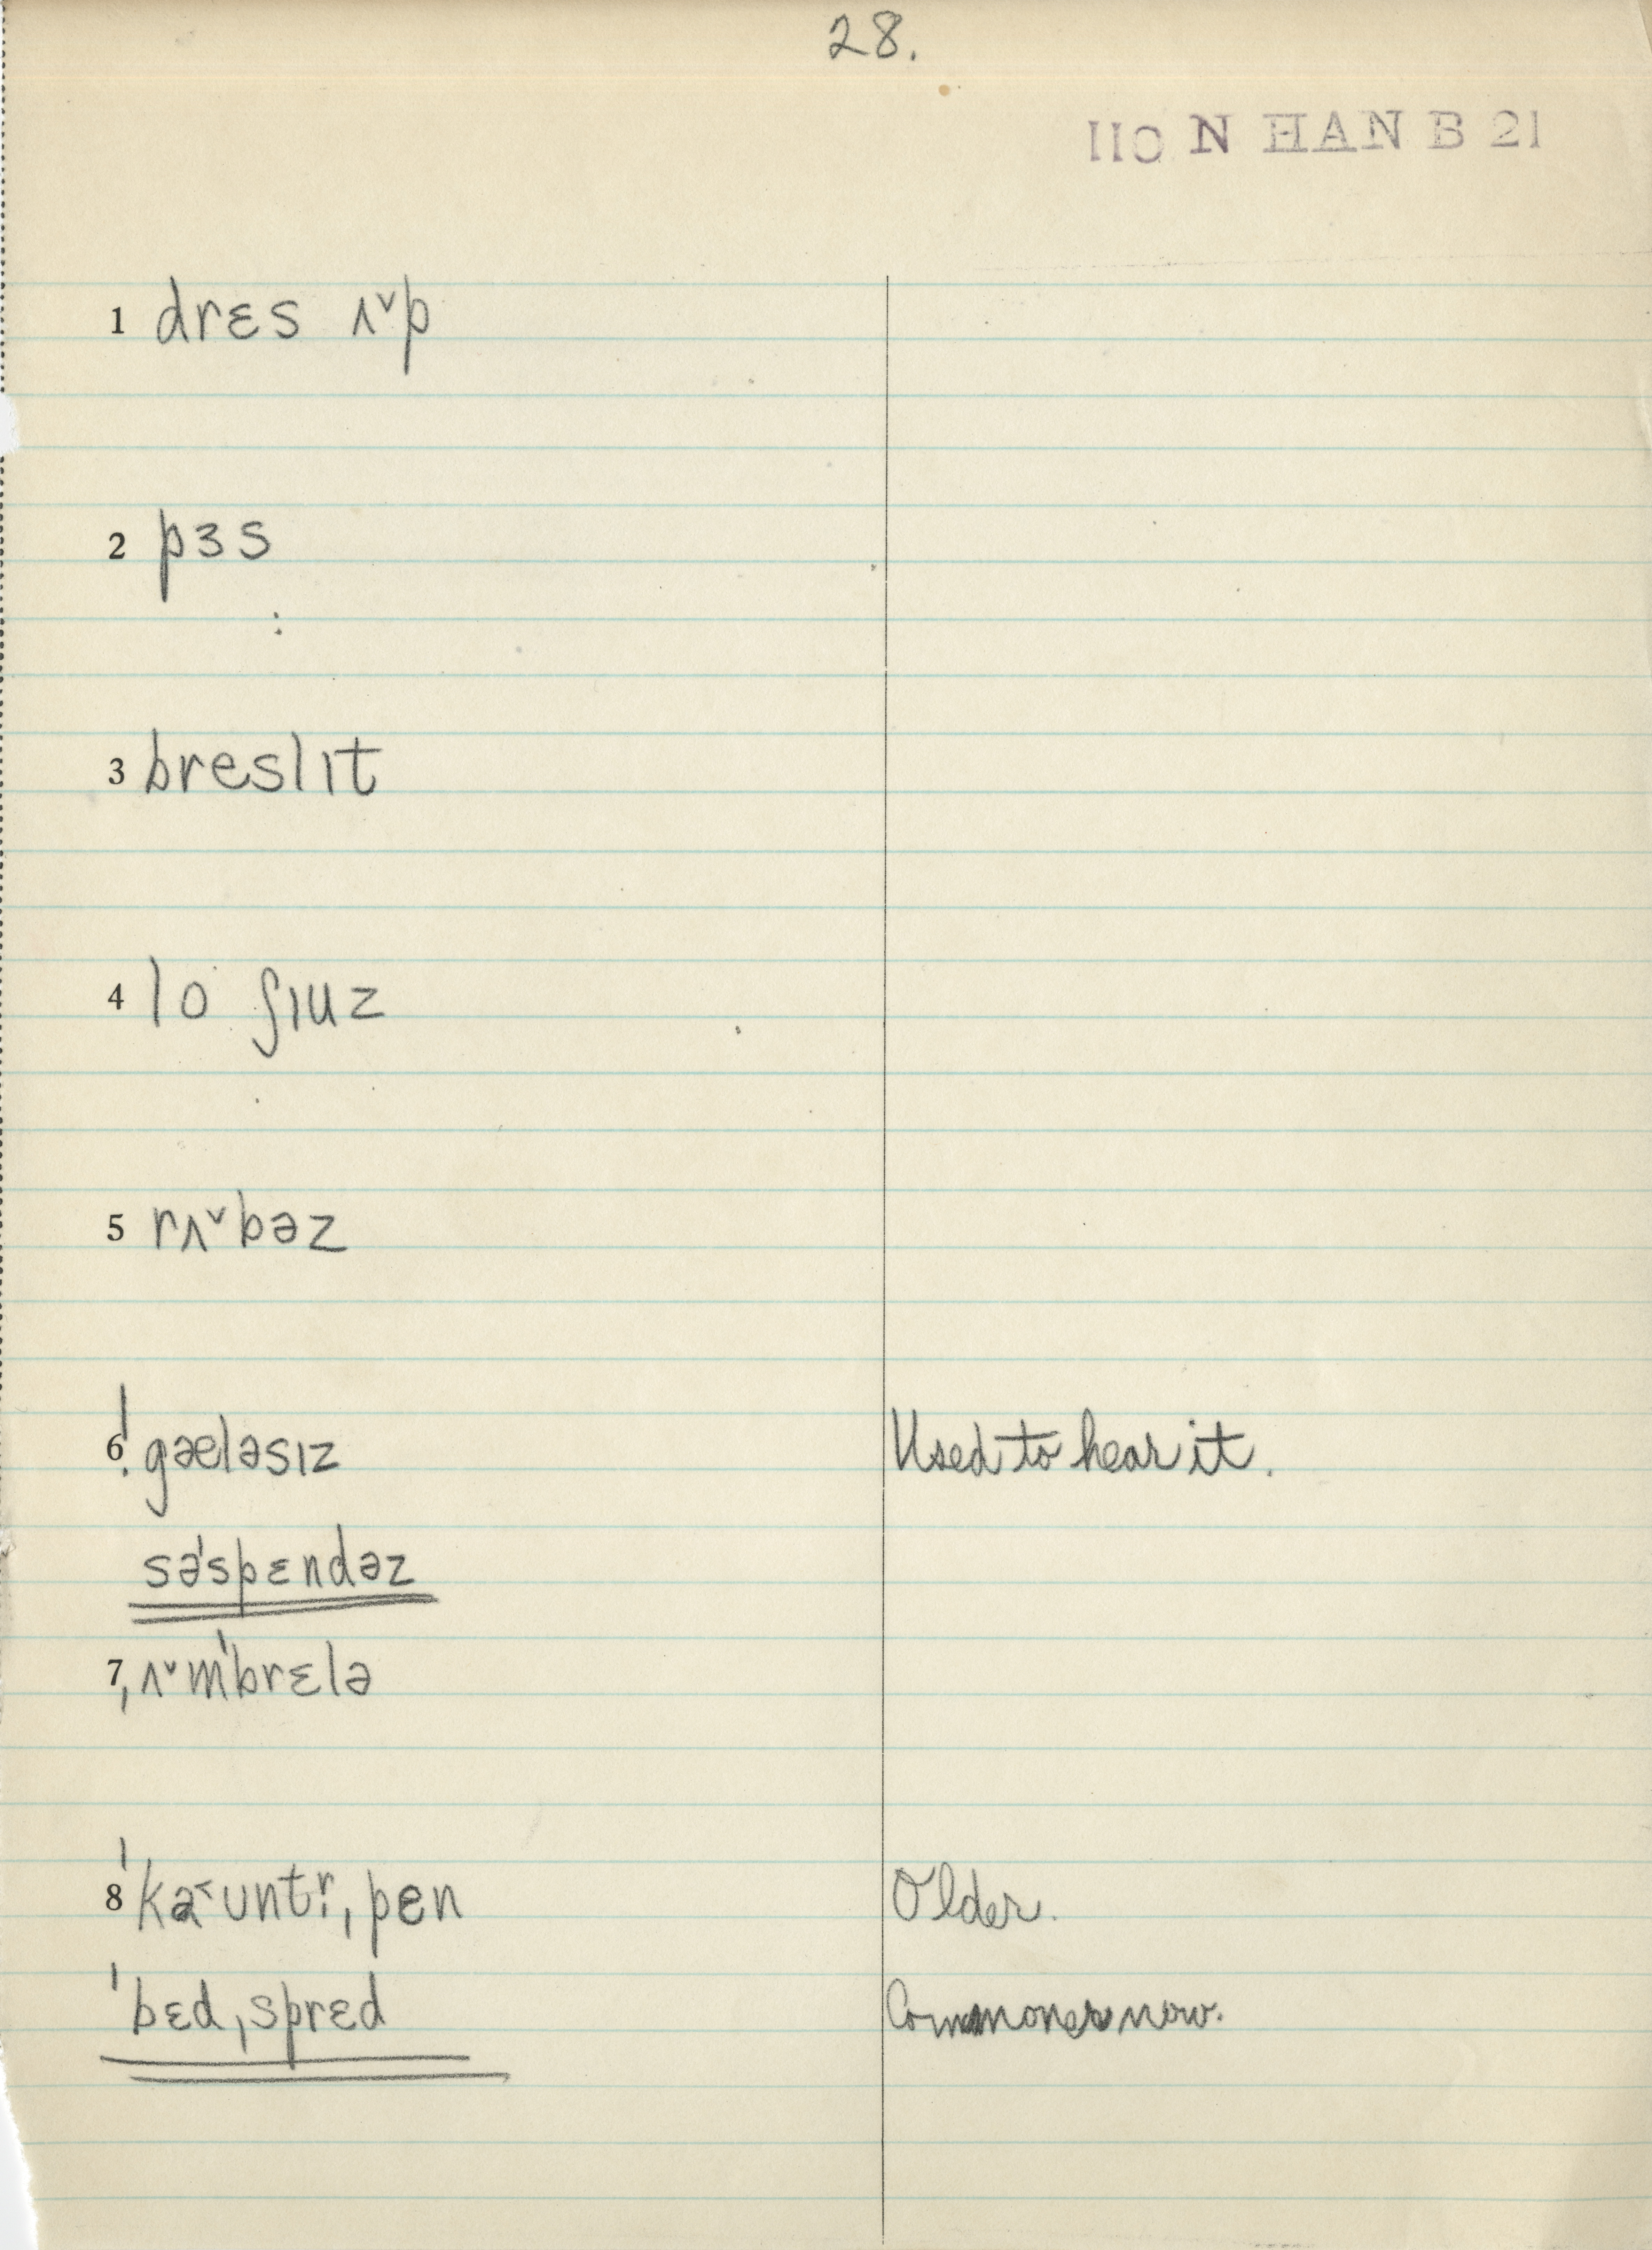 28.
110 N HAN B 21
1 drɛs ʌ˅p
2 pɜs
3 breslɪt
4 lo ʃɪuz
5 rʌ˅bəz
6 ˈgæləsɪz Used to hear it.
səˈspɛndəz
7 ˌʌ˅mˈbrɛlə
8 ˈka˂ʊntr̩ˌpɛn Older.
ˈbɛdˌsprɛd Commoner now.